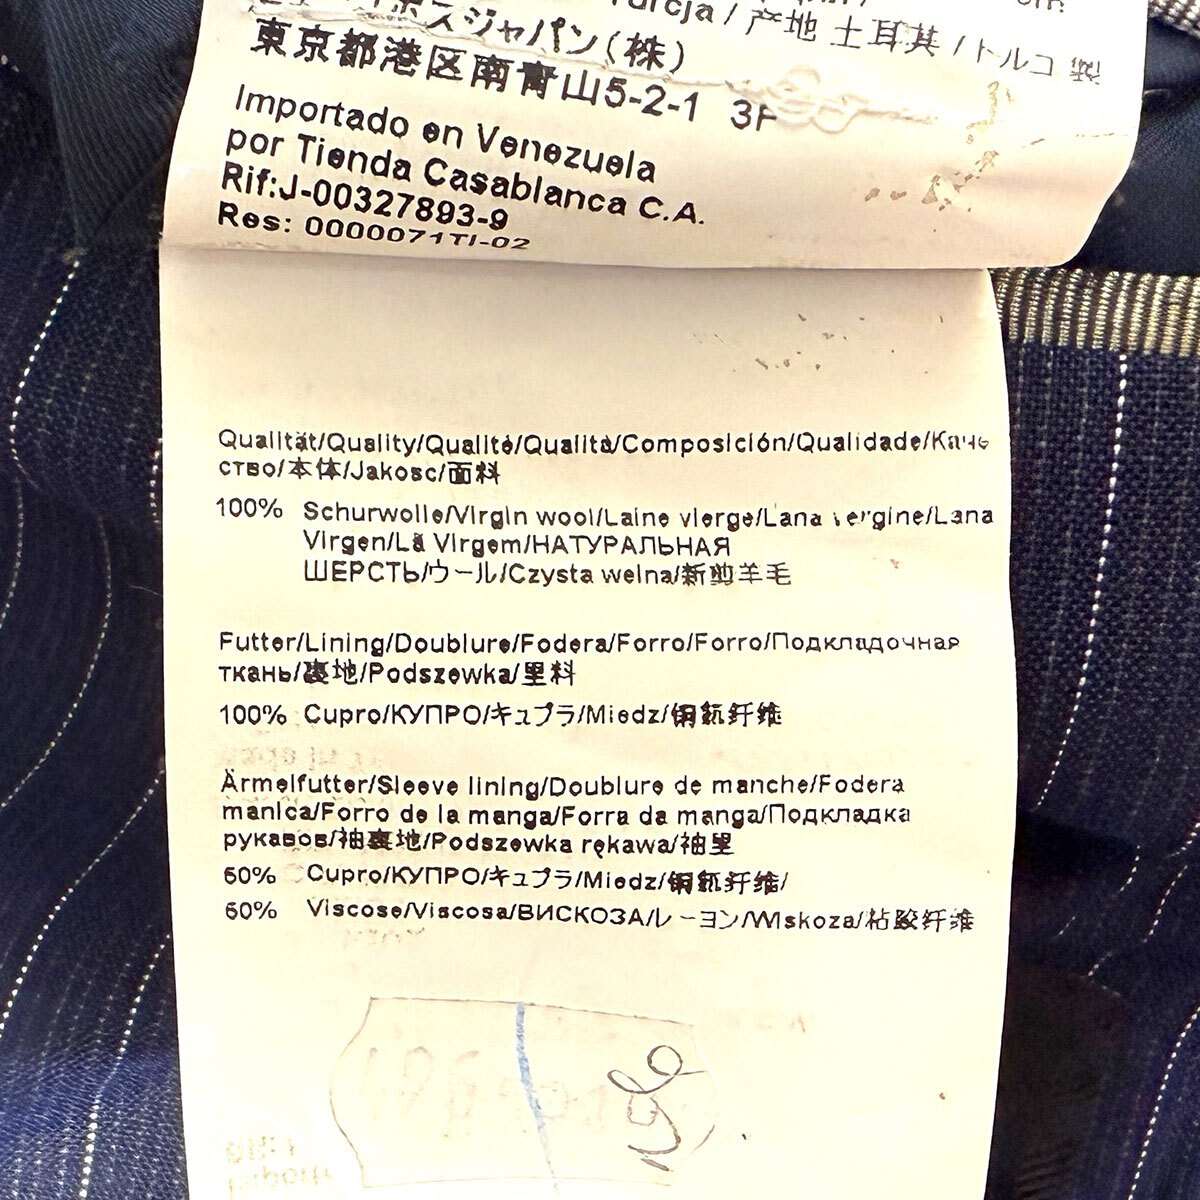 Turcja / 产地 土耳其 / トルコ 製
ボスジャパン(株)
東京都港区南青山5-2-1 3F
Importado en Venezuela
por Tienda Casablanca C.A.
Rif:J-00327893-9
Res: 0000071TI-02
Qualität/Quality/Qualité/Qualità/Composición/Qualidade/Каче
ство/本体/Jakosc/面料
100% Schurwolle/Virgin wool/Laine vierge/Lana vergine/Lana
Virgen/Lã Virgem/НАТУРАЛЬНАЯ
ШЕРСТЬ/ウール/Czysta welna/新剪羊毛
Futter/Lining/Doublure/Fodera/Forro/Forro/Подкладочная
ткань/裏地/Podszewka/里料
100% Cupro/КУПРО/キュプラ/Miedz/铜氨纤维
Ärmelfutter/Sleeve lining/Doublure de manche/Fodera
manica/Forro de la manga/Forra da manga/Подкладка
рукавов/袖裏地/Podszewka rękawa/袖里
50% Cupro/КУПРО/キュプラ/Miedz/铜氨纤维/
50% Viscose/Viscosa/ВИСКОЗА/レーヨン/Wiskoza/粘胶纤维